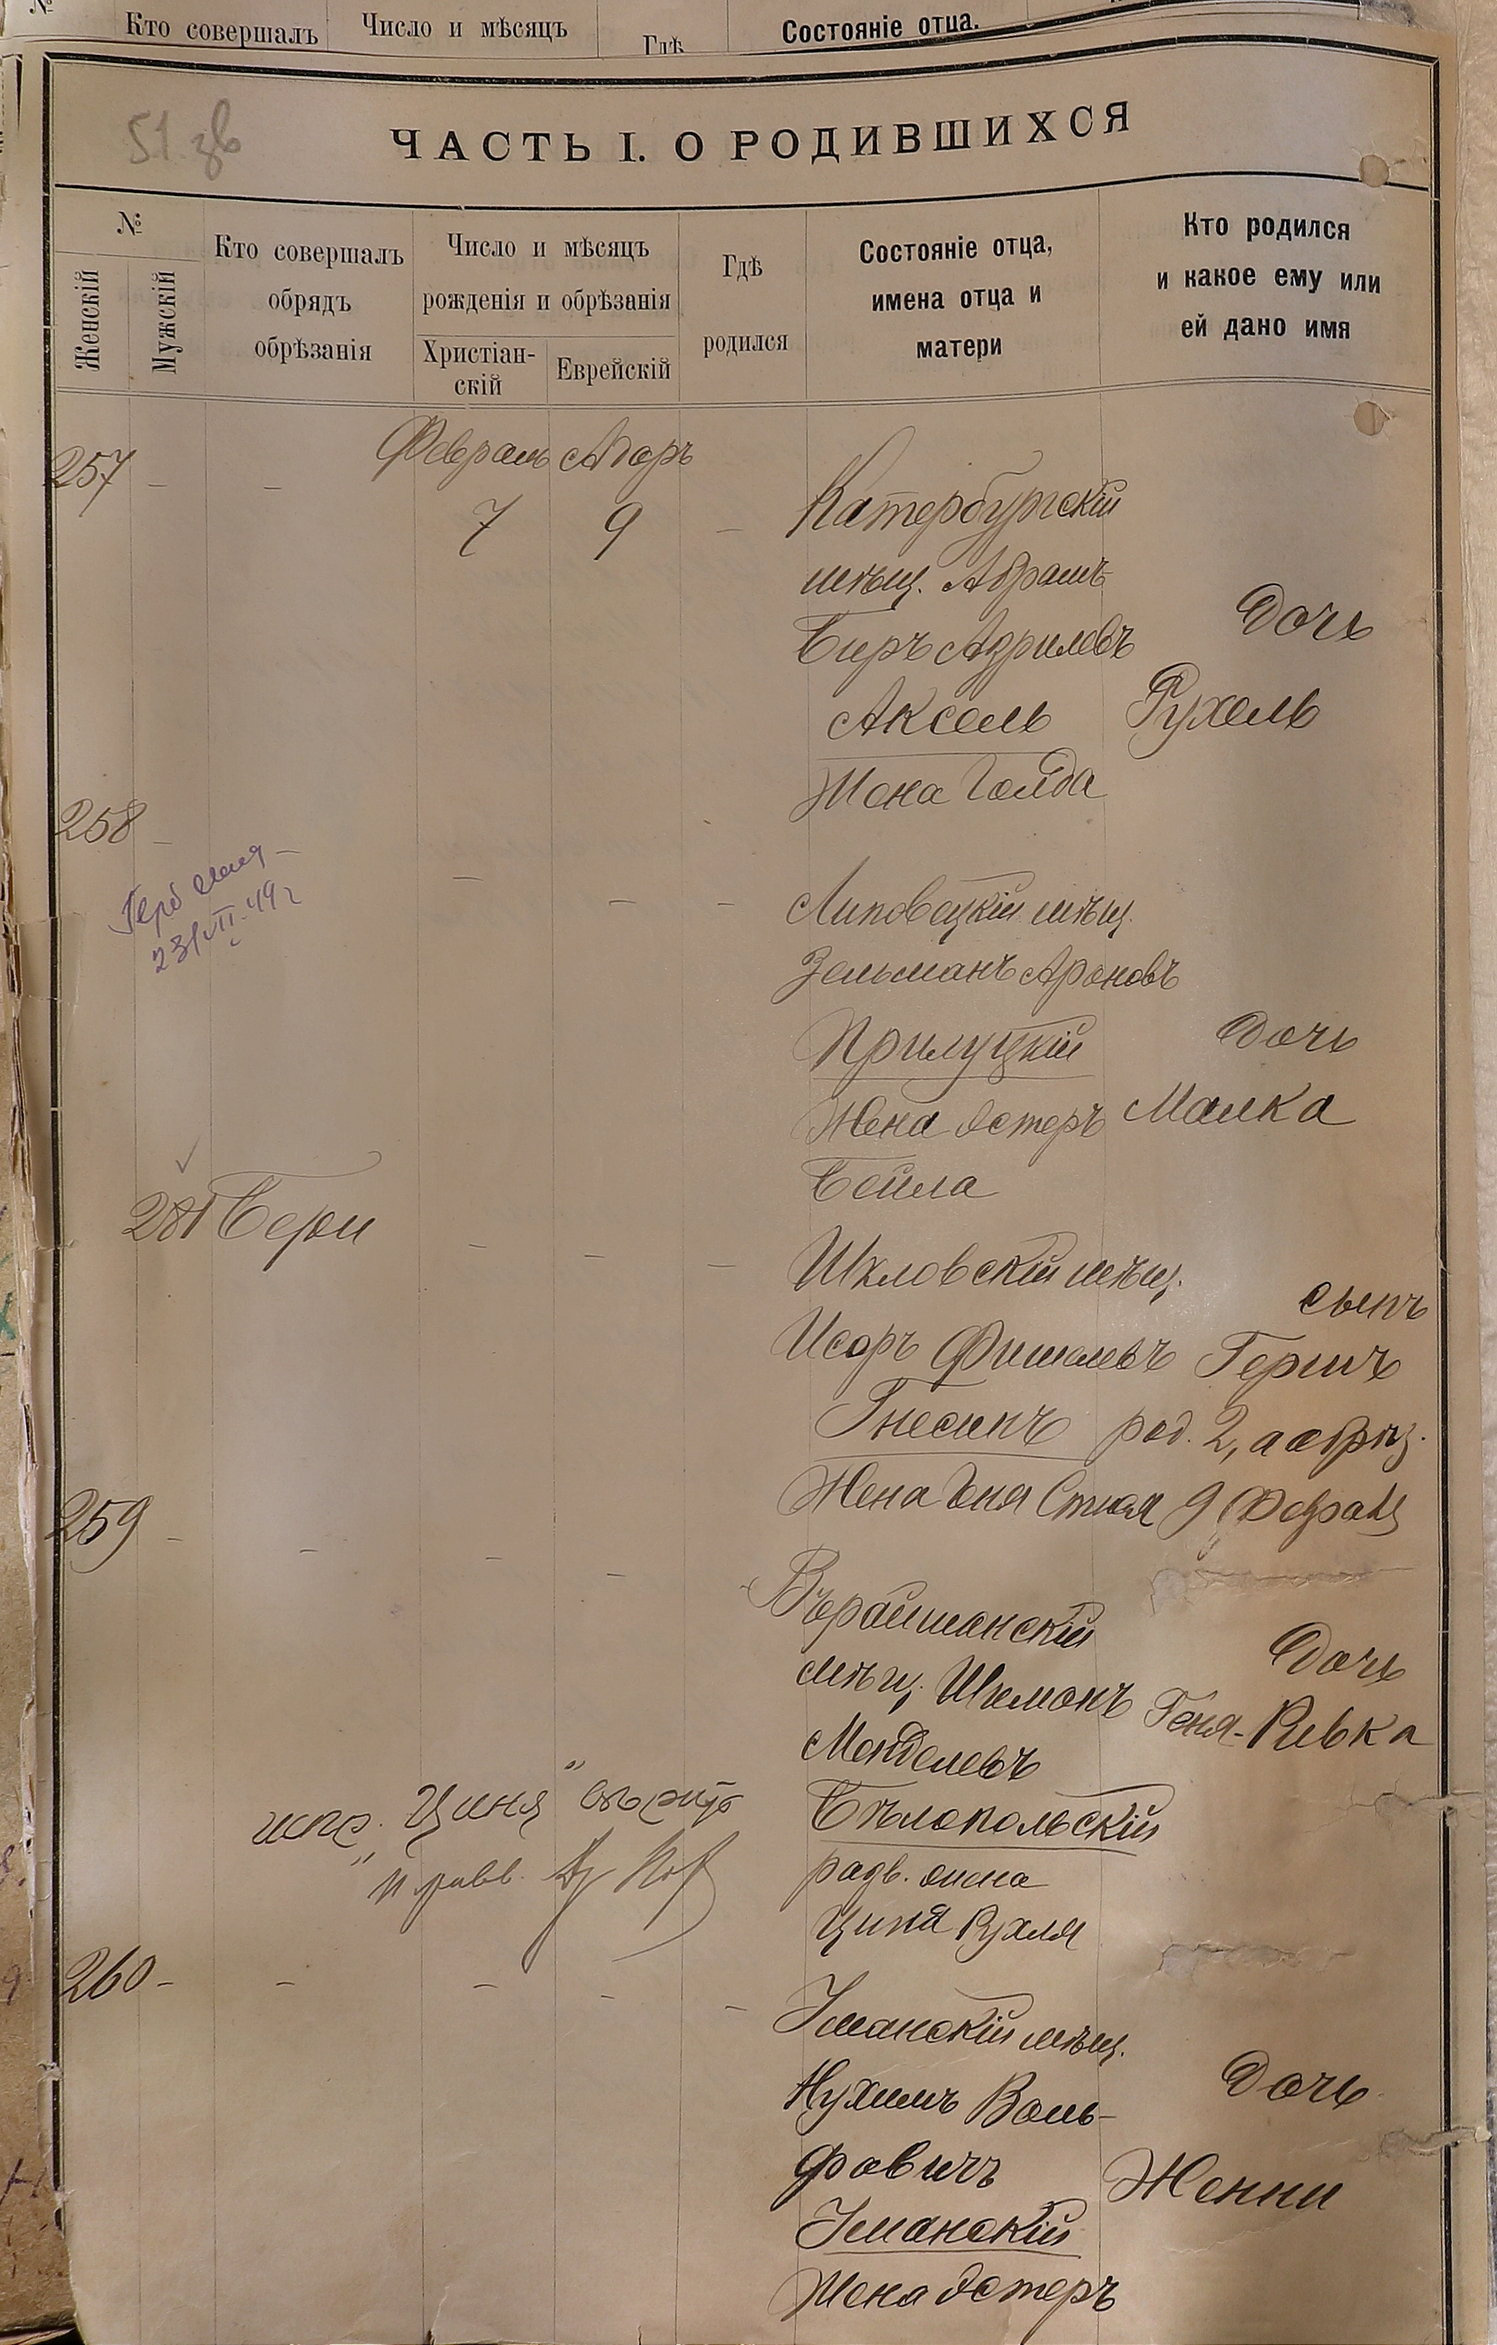 №
Кто совершалъ Число и мѣсяцъ Гдѣ Состояніе отца.
51 зв
ЧАСТЬ I. О РОДИВШИХСЯ
№
Женскій
Мужскій
Кто совершалъ
обрядъ
обрѣзанія
Число и мѣсяцъ
рожденія и обрѣзанія
Христіан-
скій
Еврейскій
Гдѣ
родился
Состояніе отца,
имена отца и
матери
Кто родился
и какое ему или
ей дано имя
Февраль Адаръ
257 - - 7 9 -
Катербургскій
мѣщ. Абрамъ
Беръ Азрилевъ
Аксель
Жена Голда
Дочь
Рухель
258 - - - -
23/VII-49 г
Липовецкій мѣщ.
Зельманъ Ароновъ
Прилуцкій
Жена Эстеръ
Бейла
Дочь
Малка
281 Берди - - -
Шкловскій мѣщ.
Исоръ Фишелевъ
Гнесинъ
Жена Еня Стися
сынъ
Гершъ
род. 2, а обрѣз.
9 Февраля
259 - - - -
мѣщ. Шлемонъ
Менделевъ
Бѣлопольскій
разв. жена
Циня Рухля
Дочь
Геня-Ривка
испр. "Циня" вѣрить
260 - - - - -
Уманскій мѣщ.
Нухимъ Воль-
фовичъ
Уманскій
Жена Эстеръ
Дочь
Женни